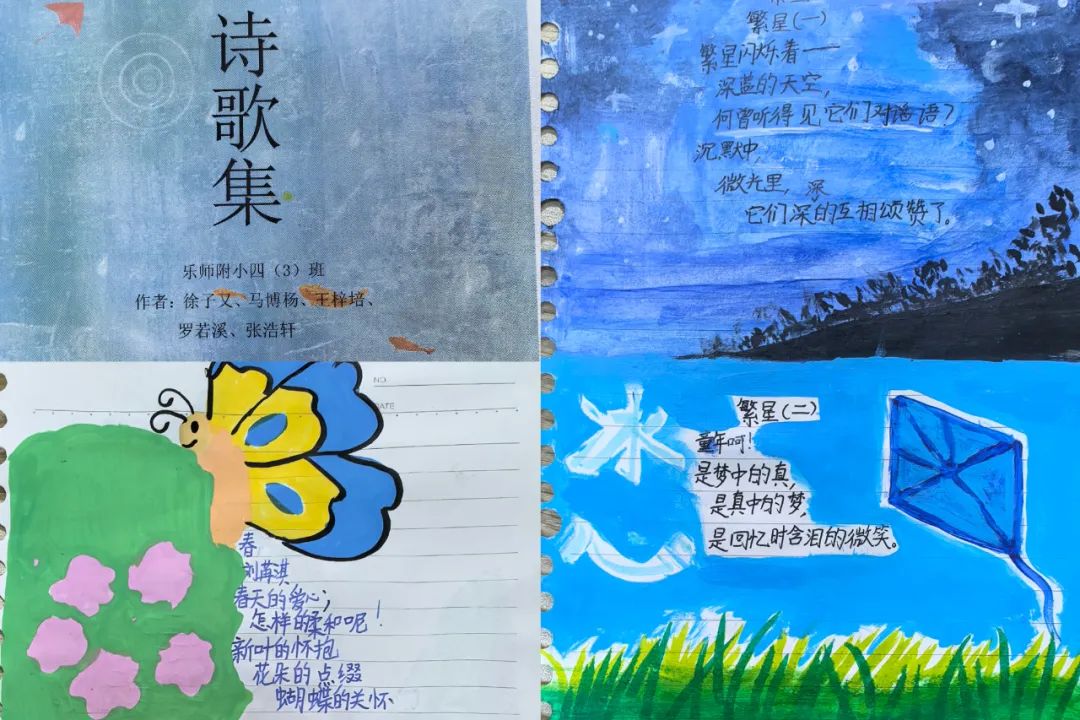 诗
歌
集
乐师附小四（3）班
作者：徐子又、马博杨、王梓培、
罗若溪、张浩轩
繁星(一)
繁星闪烁着——
深蓝的天空，
何曾听得见它们对话语？
沉默中，
微光里，深
它们深的互相颂赞了。
NO.
DATE
春
刘苒淇
春天的爱心；
怎样的柔和呢！
新叶的怀抱
花朵的点缀
蝴蝶的关怀
冰
心
繁星(二)
童年呵！
是梦中的真，
是真中的梦，
是回忆时含泪的微笑。